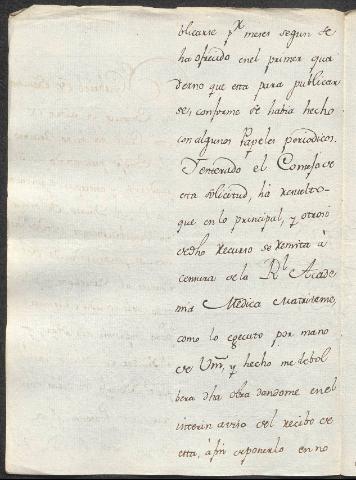 blicarse pr. meses segun se
ha ofrecido en el primer qua
derno que esta para publicar
se, conforme se habia hecho
con algunos Papeles periodicos.
Y enterado el Consejo de
esta solicitud, há resuelto
que en lo principal, y otrosi
de dho recurso se remita à
censura de la Rl. Acade
mia Medica Matritense,
como lo egecuto por mano
de Vm, y hecho me debol
bera dha obra dandome en el
interin aviso del recibo de
esta, à fin de ponerlo en no